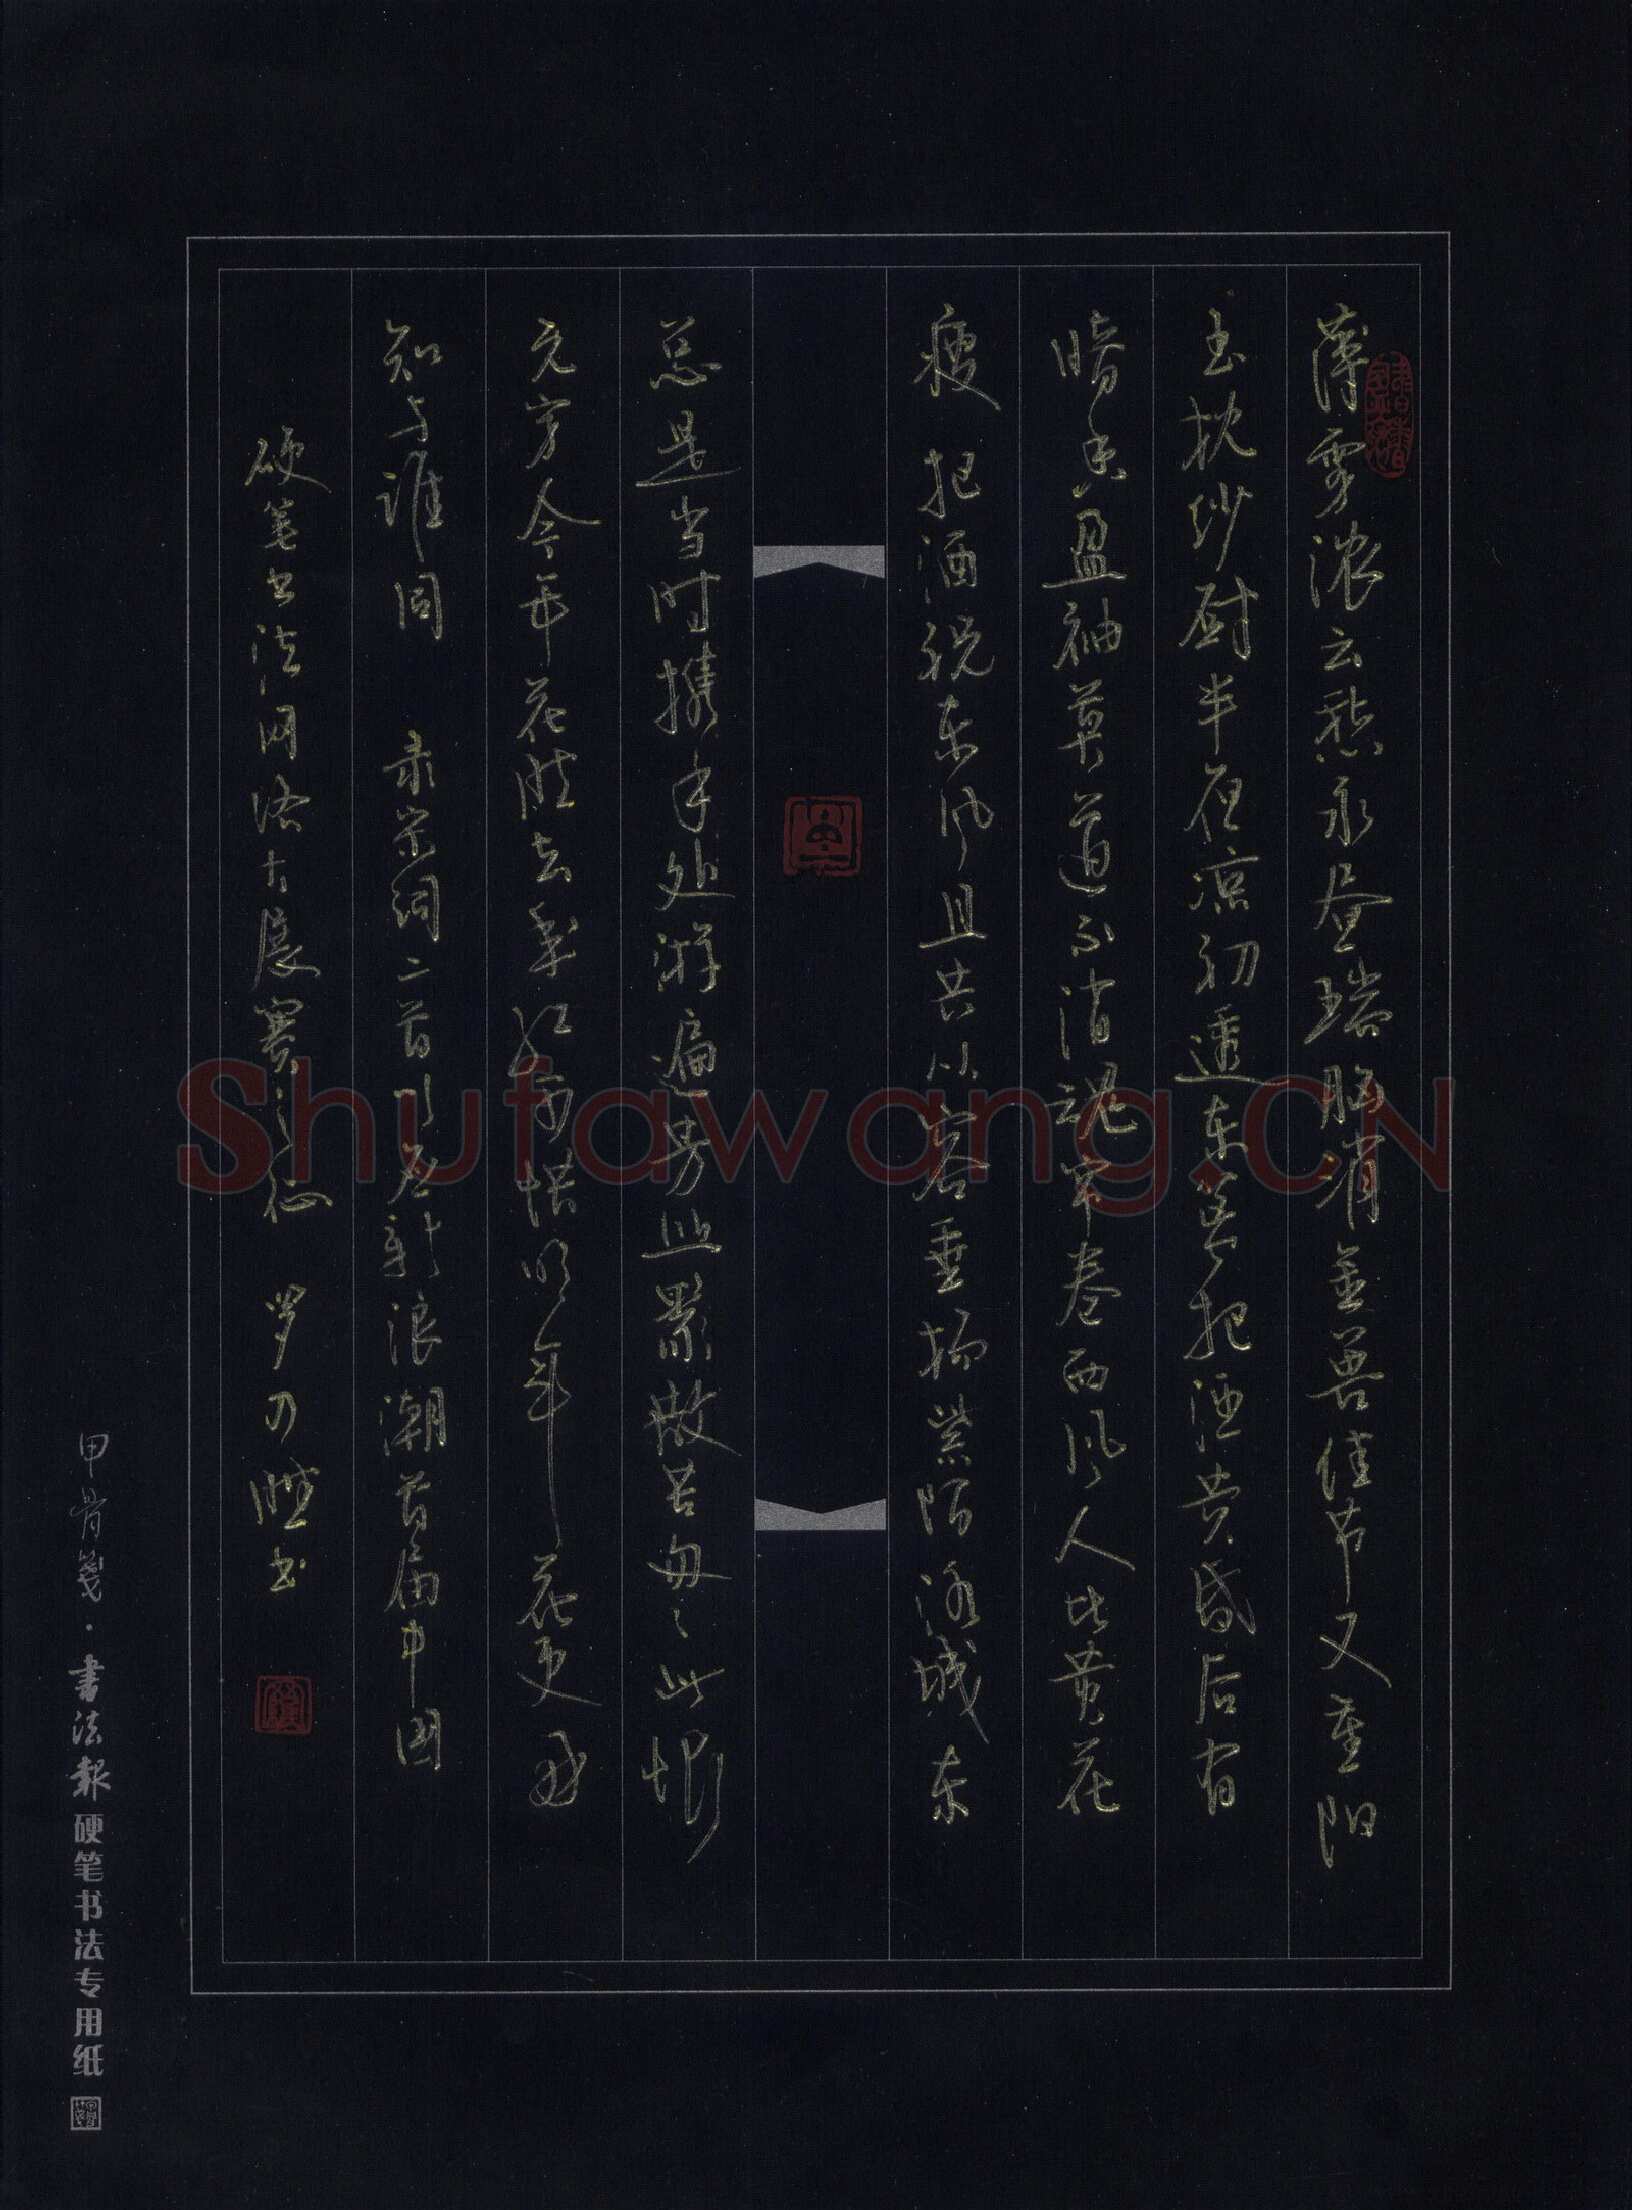 薄雾浓云愁永昼瑞脑消金兽佳节又重阳
玉枕纱厨半夜凉初透东篱把酒黄昏后有
暗香盈袖莫道不消魂帘卷西风人比黄花
瘦 把酒祝东风且共从容垂杨紫陌洛城东
总是当时携手处游遍芳丛聚散苦匆〻此恨
无穷今年花胜去年红可惜明年花更好
知与谁同 录宋词二首以应新浪潮首届中国
硬笔书法网络大展赛之征 罗胜书
甲骨笺·書法報硬笔书法专用纸
Shufawang.CN